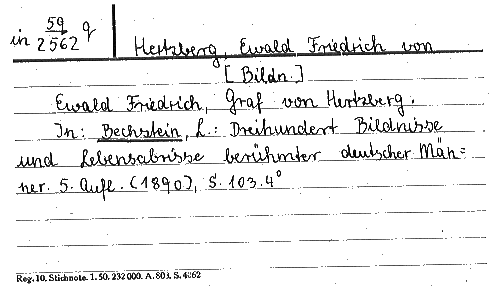 in 59/2562 q
Hertzberg, Ewald Friedrich von
[Bildn.]
Ewald Friedrich, Graf von Hertzberg.
In: Bechstein, L.: Dreihundert Bildnisse
und Lebensabrisse berühmter deutscher Män=
ner. 5. Aufl. (1890), S. 103. 4°
Reg. 10. Stichnote. 1. 50. 232 000. A. 803. S. 4862